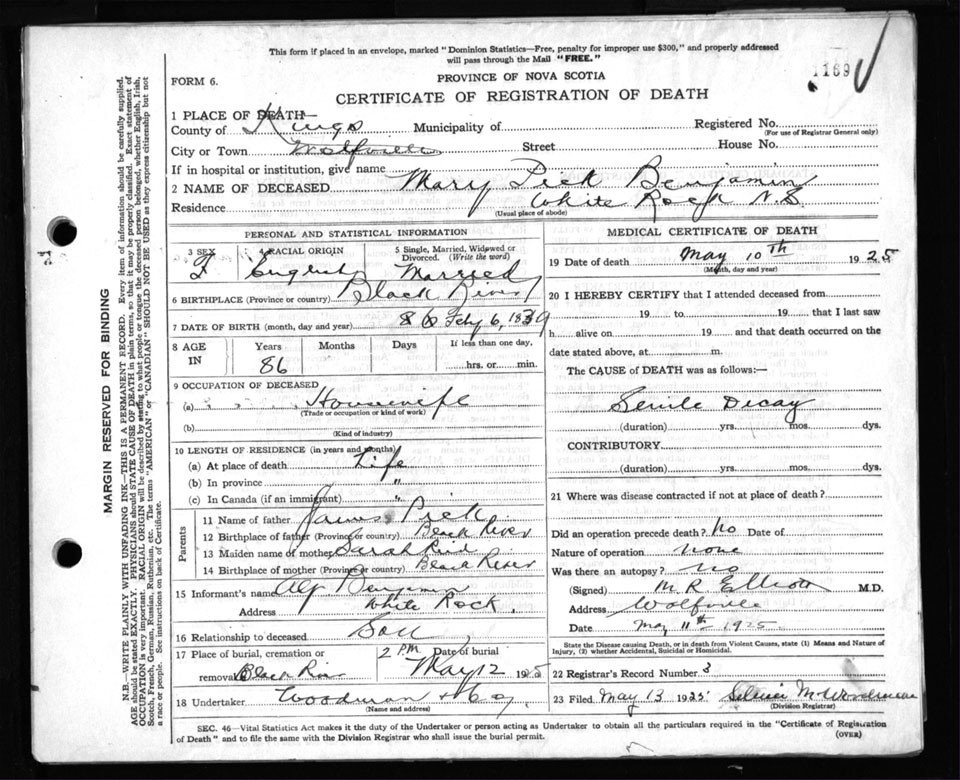 This form if placed in an envelope, marked "Dominion Statistics—Free, penalty for improper use $300," and properly addressed
will pass through the Mail "FREE."
1169
FORM 6.
PROVINCE OF NOVA SCOTIA
CERTIFICATE OF REGISTRATION OF DEATH
1 PLACE OF DEATH—
County of Kings Municipality of Registered No.
(For use of Registrar General only)
City or Town Wolfville Street House No.
If in hospital or institution, give name
2 NAME OF DECEASED Mary Pick Benjamin
Residence White Rock N.S.
(Usual place of abode)
PERSONAL AND STATISTICAL INFORMATION
3 SEX 4 RACIAL ORIGIN 5 Single, Married, Widowed or
Divorced. (Write the word)
F English Married
6 BIRTHPLACE (Province or country) Black River
7 DATE OF BIRTH (month, day and year) Feby 6, 1839
8 AGE Years Months Days If less than one day,
IN 86 hrs. or min.
9 OCCUPATION OF DECEASED
(a) Housewife
(Trade or occupation or kind of work)
(b)
(Kind of industry)
10 LENGTH OF RESIDENCE (in years and months)
(a) At place of death Life
(b) In province "
(c) In Canada (if an immigrant) "
Parents
11 Name of father James Pick
12 Birthplace of father (Province or country) Black River
13 Maiden name of mother Sarah
14 Birthplace of mother (Province or country) Black River
15 Informant's name Alf Benjamin
Address White Rock.
16 Relationship to deceased Son
17 Place of burial, cremation or Date of burial
2 P.M.
removal Black River May 12 1925
18 Undertaker Woodman & Co.
(Name and address)
MEDICAL CERTIFICATE OF DEATH
19 Date of death May 10th 1925
(Month, day and year)
20 I HEREBY CERTIFY that I attended deceased from
19 to 19 that I last saw
h alive on 19 and that death occurred on the
date stated above, at m.
The CAUSE of DEATH was as follows:—
Senile Decay
(duration) yrs. mos. dys.
CONTRIBUTORY.
(duration) yrs. mos. dys.
21 Where was disease contracted if not at place of death?
Did an operation precede death? No Date of
Nature of operation none
Was there an autopsy? no
(Signed) M. R. Elliott M.D.
Address Wolfville
Date May 11th 1925
State the Disease causing Death, or in death from Violent Causes, state (1) Means and Nature of
Injury, (2) whether Accidental, Suicidal or Homicidal.
22 Registrar's Record Number 3
23 Filed May 13 1925
(Division Registrar)
SEC. 46—Vital Statistics Act makes it the duty of the Undertaker or person acting as Undertaker to obtain all the particulars required in the "Certificate of Registration
of Death" and to file the same with the Division Registrar who shall issue the burial permit. (OVER)
MARGIN RESERVED FOR BINDING
N.B.—WRITE PLAINLY WITH UNFADING INK—THIS IS A PERMANENT RECORD. Every item of information should be carefully supplied.
AGE should be stated EXACTLY. PHYSICIANS should STATE CAUSE OF DEATH in plain terms, so that it may be properly classified. Exact statement of
OCCUPATION is very important. RACIAL ORIGIN will be described by stating to what people or tongue the deceased person belonged, whether English, Irish,
Scotch, French, German, Russian, Ruthenian, etc. The terms "AMERICAN" or "CANADIAN" SHOULD NOT BE USED as they express citizenship but not
a race or people. See instructions on back of Certificate.